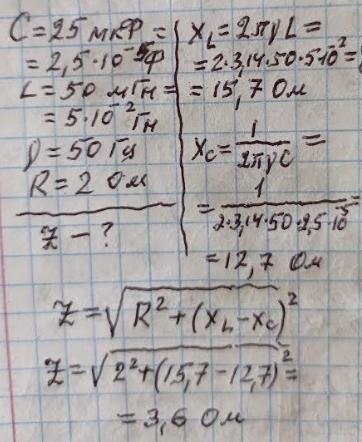 C = 25 мкФ =
= 2,5·10⁻⁵Ф
L = 50 мГн =
= 5·10⁻²Гн
ν = 50 Гц
R = 2 Ом
Z - ?
X_L = 2πνL =
= 2·3,14·50·5·10⁻² =
= 15,7 Ом
X_C = 1/2πνC =
= 1/2·3,14·50·2,5·10⁻⁵ =
= 12,7 Ом
Z = √R² + (X_L - X_C)²
Z = √2² + (15,7 - 12,7)² =
= 3,6 Ом